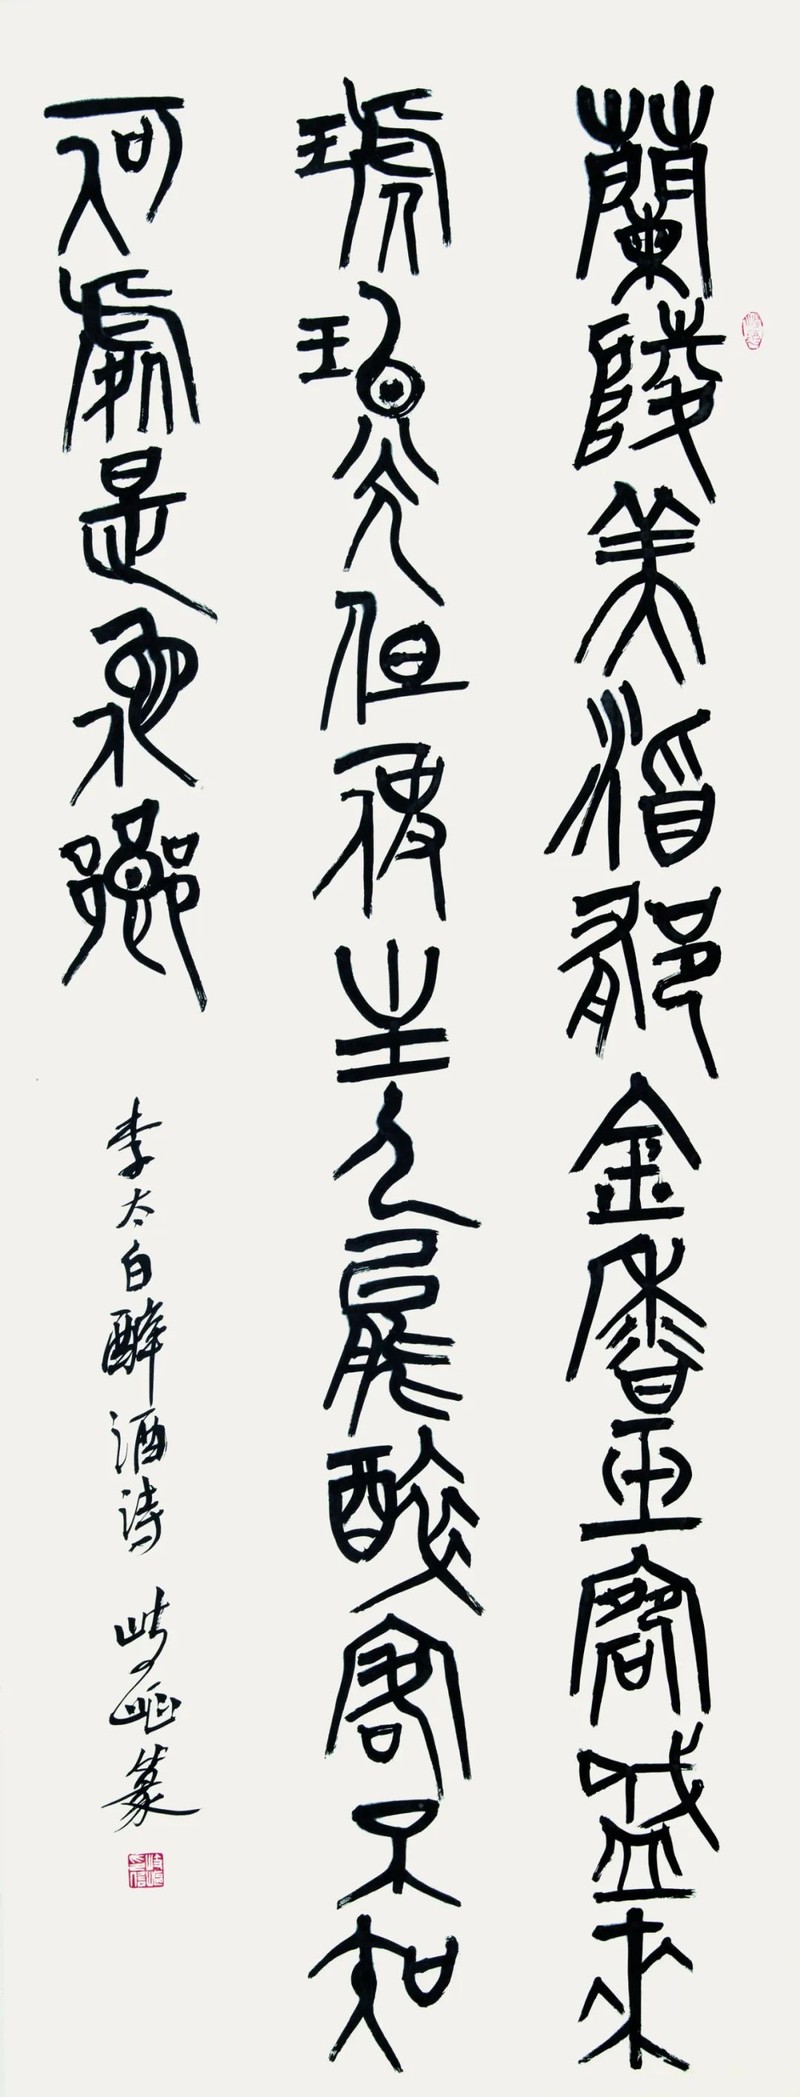 蘭陵美酒鬱金香玉碗盛來
琥珀光但使主人能醉客不知
何處是他鄉
李太白醉酒詩 岐岖篆